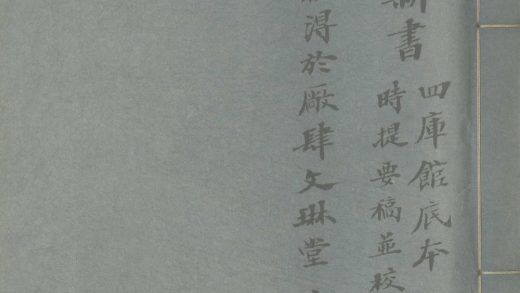 書
四庫館底本
時提要稿並校
得於厰肆文琳堂